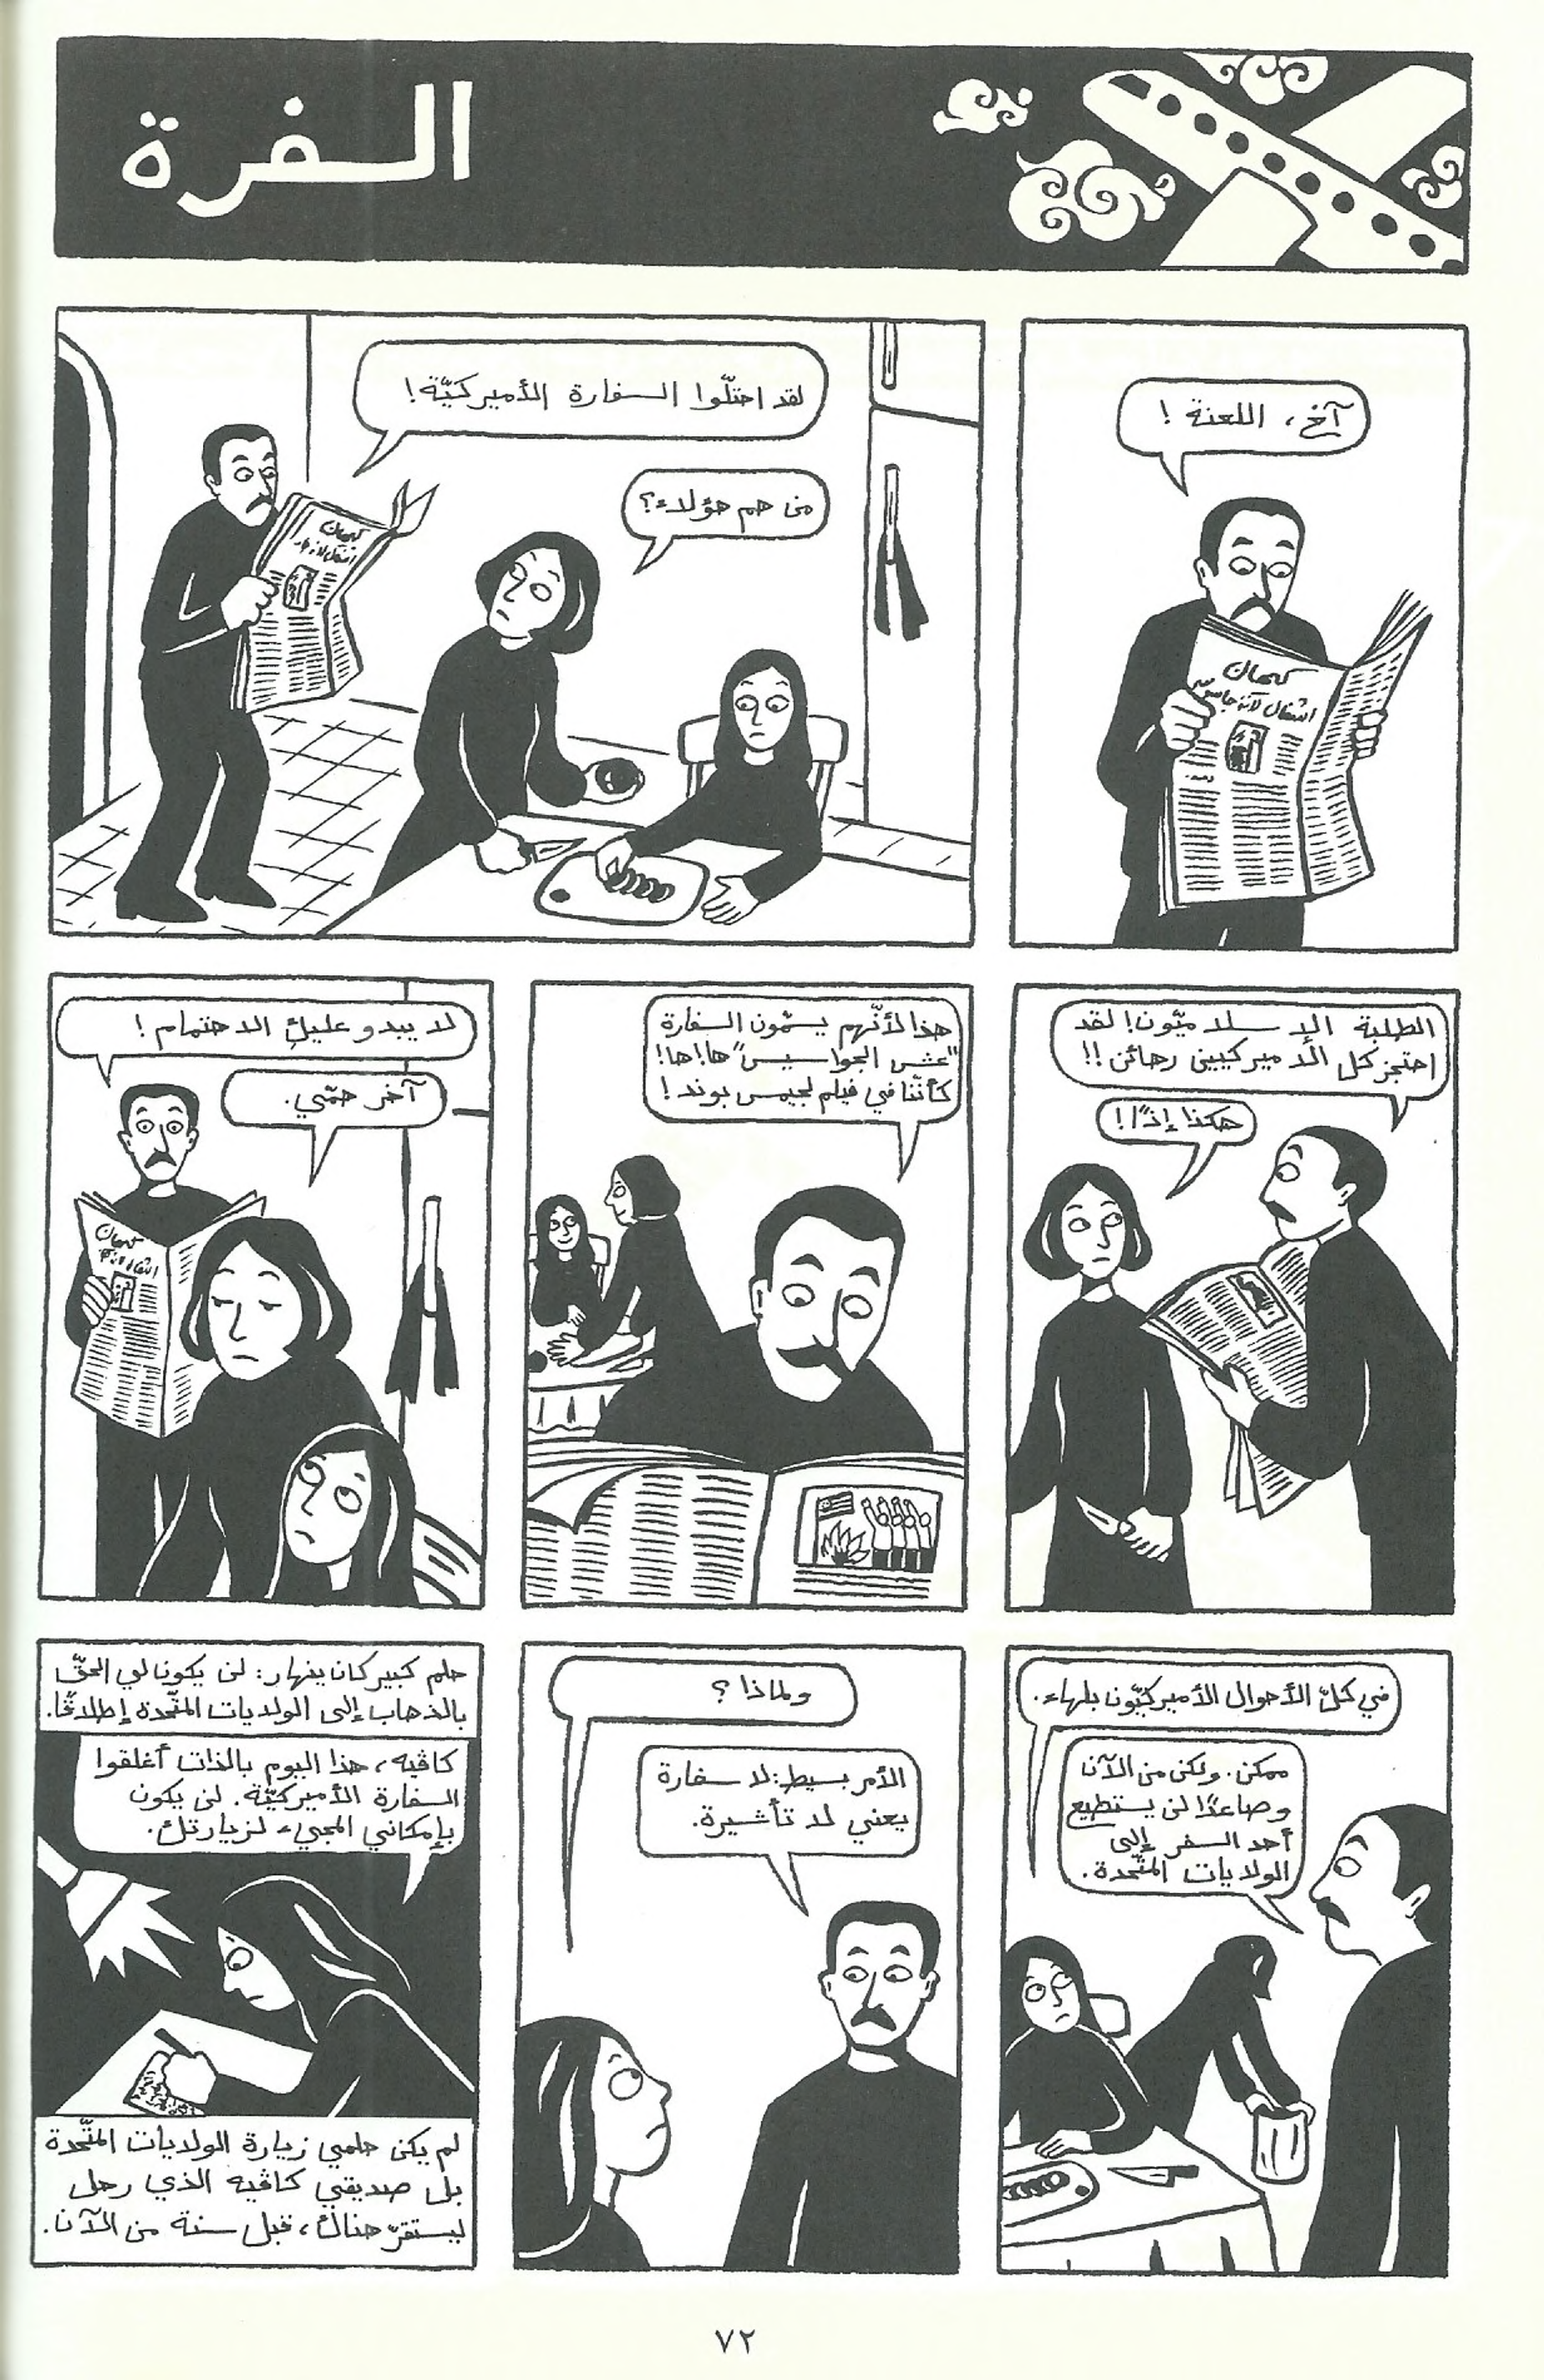 السفرة
آخ، اللعنة!
كيهان
لقد احتلّوا السفارة الأميركيّة!
من هم هؤلاء؟
كيهان
الطلبة الإسلاميّون! لقد
احتجز كل الأميركيين رهائن!!
هكذا إذًا!
هذا لأنّهم يسمّون السفارة
"عش الجواسيس" ها! ها!
كأننا في فيلم لجيمس بوند!
لا يبدو عليكِ الاهتمام!
آخر همّي.
كيهان
في كلّ الأحوال الأميركيّون بلهاء.
ممكن. ولكن من الآن
وصاعدًا لن يستطيع
أحد السفر إلى
الولايات المتّحدة.
ولماذا؟
الأمر بسيط: لا سفارة
يعني لا تأشيرة.
حلم كبير كان ينهار: لن يكون لي الحقّ
بالذهاب إلى الولايات المتّحدة إطلاقًا.
كاڤيه، هذا اليوم بالذات أغلقوا
السفارة الأميركيّة. لن يكون
بإمكاني المجيء لزيارتك.
لم يكن حلمي زيارة الولايات المتّحدة
بل صديقي كاڤيه الذي رحل
ليستقرّ هناك، قبل سنة من الآن.
٧٢